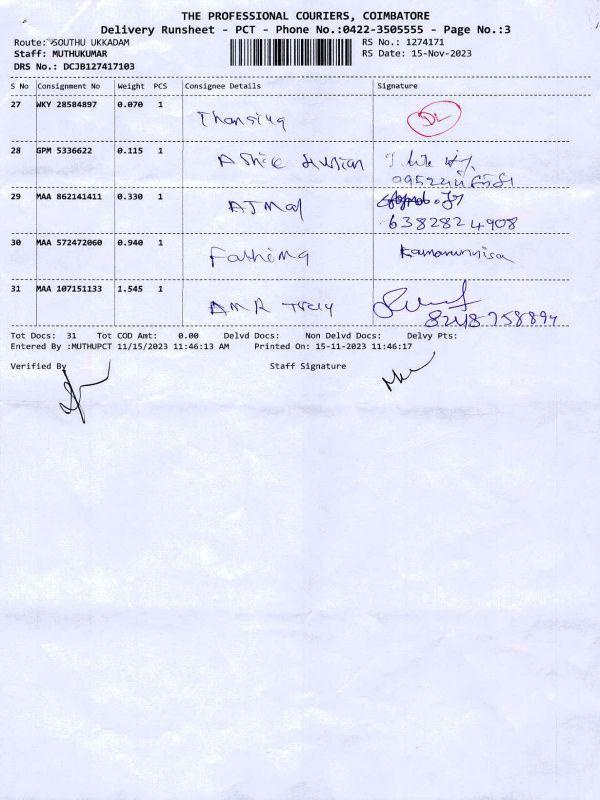 THE PROFESSIONAL COURIERS, COIMBATORE
Delivery Runsheet - PCT - Phone No.:0422-3505555 - Page No.:3
Route: SOUTHU UKKADAM
RS No.: 1274171
Staff: MUTHUKUMAR
RS Date: 15-Nov-2023
DRS No.: DCJB127417103
S No Consignment No Weight PCS Consignee Details Signature
27 WKY 28584897 0.070 1
DL
28 GPM 5336622 0.115 1
29 MAA 862141411 0.330 1 AJMal
6382824908
30 MAA 572472060 0.940 1 Fathima Kamarunnisa
31 MAA 107151133 1.545 1 AMR
Tot Docs: 31 Tot COD Amt: 0.00 Delvd Docs: Non Delvd Docs: Delvy Pts:
Entered By :MUTHUPCT 11/15/2023 11:46:13 AM Printed On: 15-11-2023 11:46:17
Verified By Staff Signature